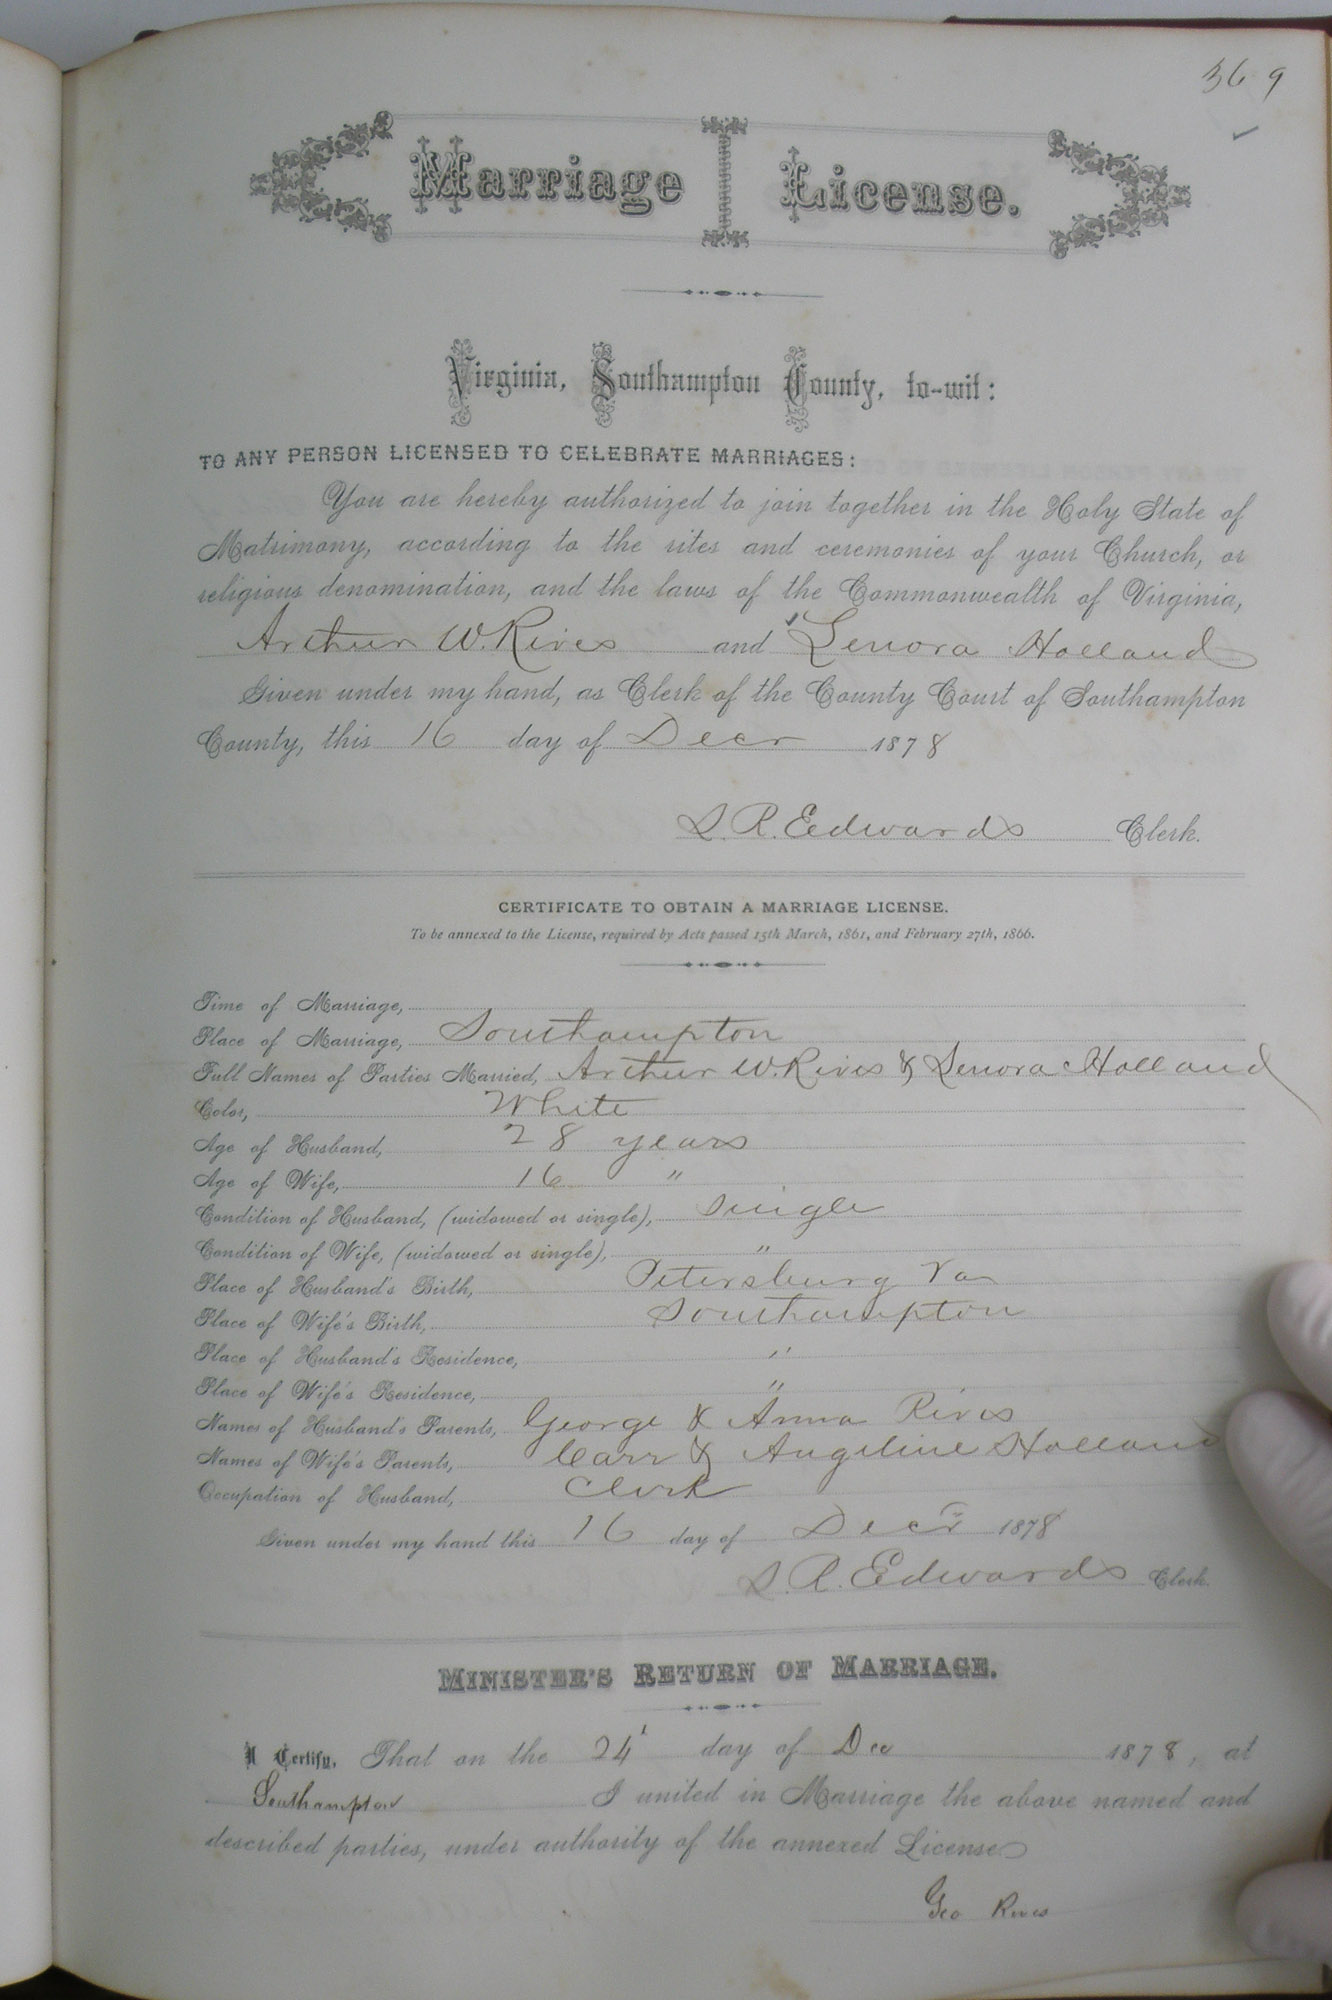 369
Marriage License.
Virginia, Southampton County, to-wit:
TO ANY PERSON LICENSED TO CELEBRATE MARRIAGES:
You are hereby authorized to join together in the Holy State of
Matrimony, according to the rites and ceremonies of your Church, or
religious denomination, and the laws of the Commonwealth of Virginia,
Arthur W. Rives and Lenora Holland
Given under my hand, as Clerk of the County Court of Southampton
County, this 16 day of Decr 1878
L. R. Edwards Clerk.
CERTIFICATE TO OBTAIN A MARRIAGE LICENSE.
To be annexed to the License, required by Acts passed 15th March, 1861, and February 27th, 1866.
Time of Marriage,
Place of Marriage, Southampton
Full Names of Parties Married, Arthur W. Rives & Lenora Holland
Color, White
Age of Husband, 28 years
Age of Wife, 16 "
Condition of Husband, (widowed or single), Single
Condition of Wife, (widowed or single), "
Place of Husband's Birth, Petersburg Va
Place of Wife's Birth, Southampton
Place of Husband's Residence, "
Place of Wife's Residence, "
Names of Husband's Parents, George & Anna Rives
Names of Wife's Parents, Carr & Angeline Holland
Occupation of Husband, Clerk
Given under my hand this 16 day of Decr 1878
L. R. Edwards Clerk.
MINISTER'S RETURN OF MARRIAGE.
I Certify, That on the 24' day of Dec 1878, at
Southampton I united in Marriage the above named and
described parties, under authority of the annexed License
Geo Rives